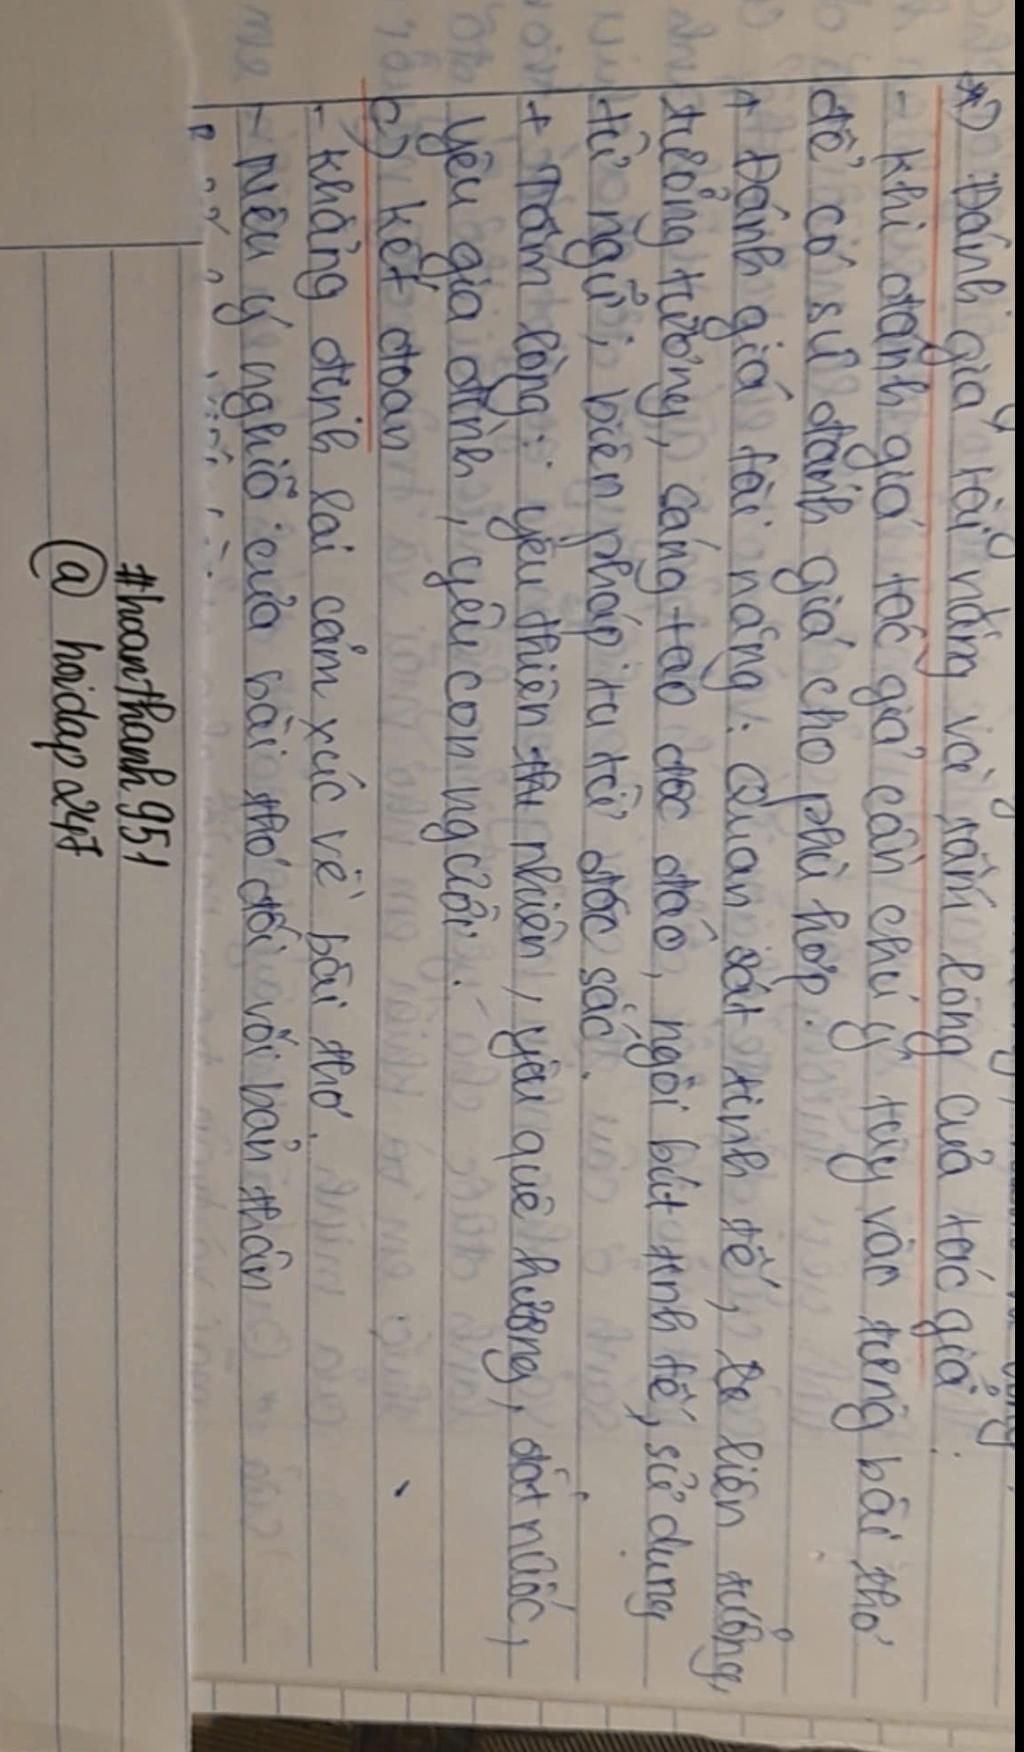 *) Đánh giá tài năng và tấm lòng của tác giả:
- Khi đánh giá tác giả cần chú ý tùy vào từng bài thơ
để có sự đánh giá cho phù hợp.
+ Đánh giá tài năng: Quan sát tinh tế, liên tưởng,
tưởng tượng, sáng tạo độc đáo, ngòi bút tinh tế, sử dụng
từ ngữ, biện pháp tu từ đặc sắc.
+ Tấm lòng: yêu thiên nhiên, yêu quê hương, đất nước,
yêu gia đình, yêu con người.
c) Kết đoạn
- Khẳng định lại cảm xúc về bài thơ.
- Nêu ý nghĩa của bài thơ đối với bản thân
#hoanthanh951
@ hoidap247